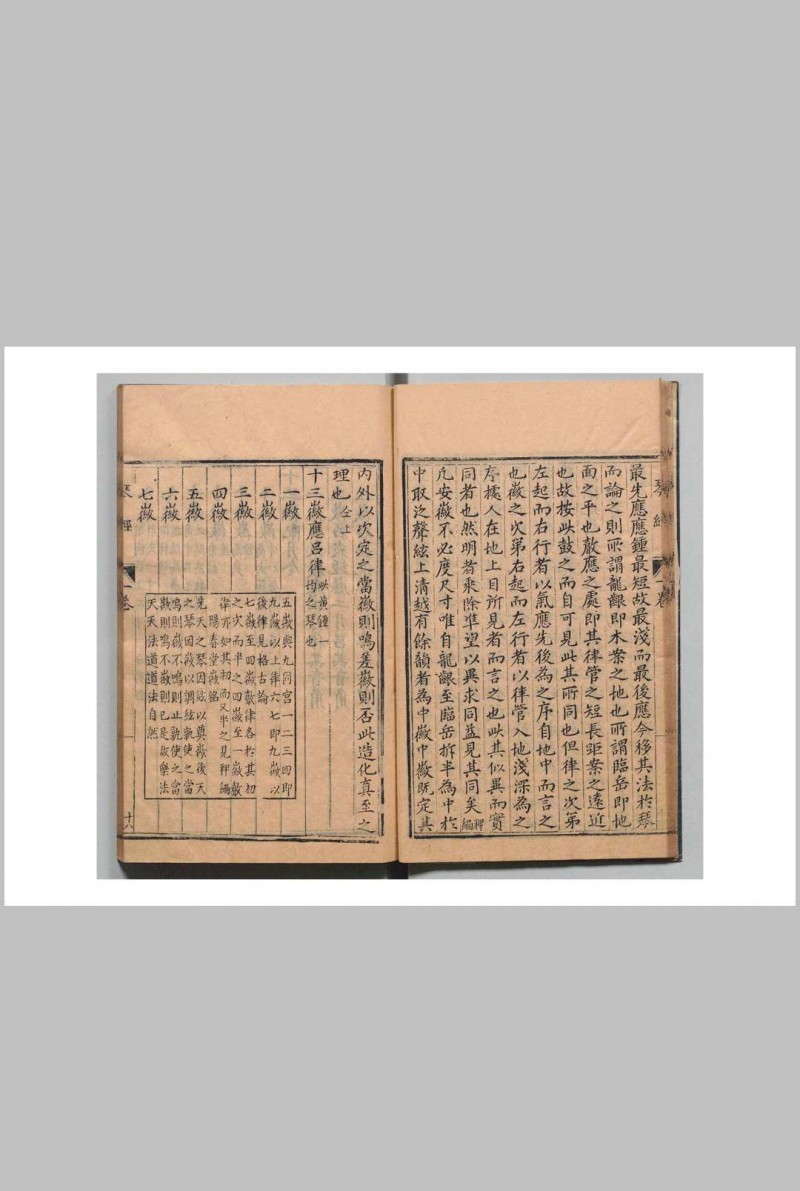 最先應應鍾最短故最淺而最後應今移其法於琴
而論之則所謂龍齦即木案之地也所謂臨岳即地
面之平也徽應之處即其律管之短長距案之遠近
也故按此鼓之而自可見此其所同也但律之次第
左起而右行者以氣應先後為之序自地中而言之
也徽之次第右起而左行者以律管入地淺深為之
序據人在地上目所見者而言之也此其似異而實
同者也然明者乘除準望以異求同益見其同矣
凡安徽不必度尺寸唯自龍齦至臨岳折半為中於
中取泛聲絃上清越有餘韻者為中徽中徽既定其
琴經
一卷
內外以次定之當徽則鳴差徽則否此造化真至之
理也仝上
十三徽應呂律以黃鍾一均之琴也
一徽
二徽
三徽
四徽
五徽
六徽
七徽
五徽與九同宮一二三四即
九徽以上律六七即九徽以
後律見格古論
七徽至四徽數律各於其初
之次而半之四徽至一徽數
律亦如其初而又半之見
陽春堂徽銘
先天之琴因絃以奠徽後天
之琴因徽以調絃孰使之當
鳴則徽不鳴則止孰使之當
徽則鳴不徽則已是故樂法
天天法道道法自然
琴經
一卷
十六